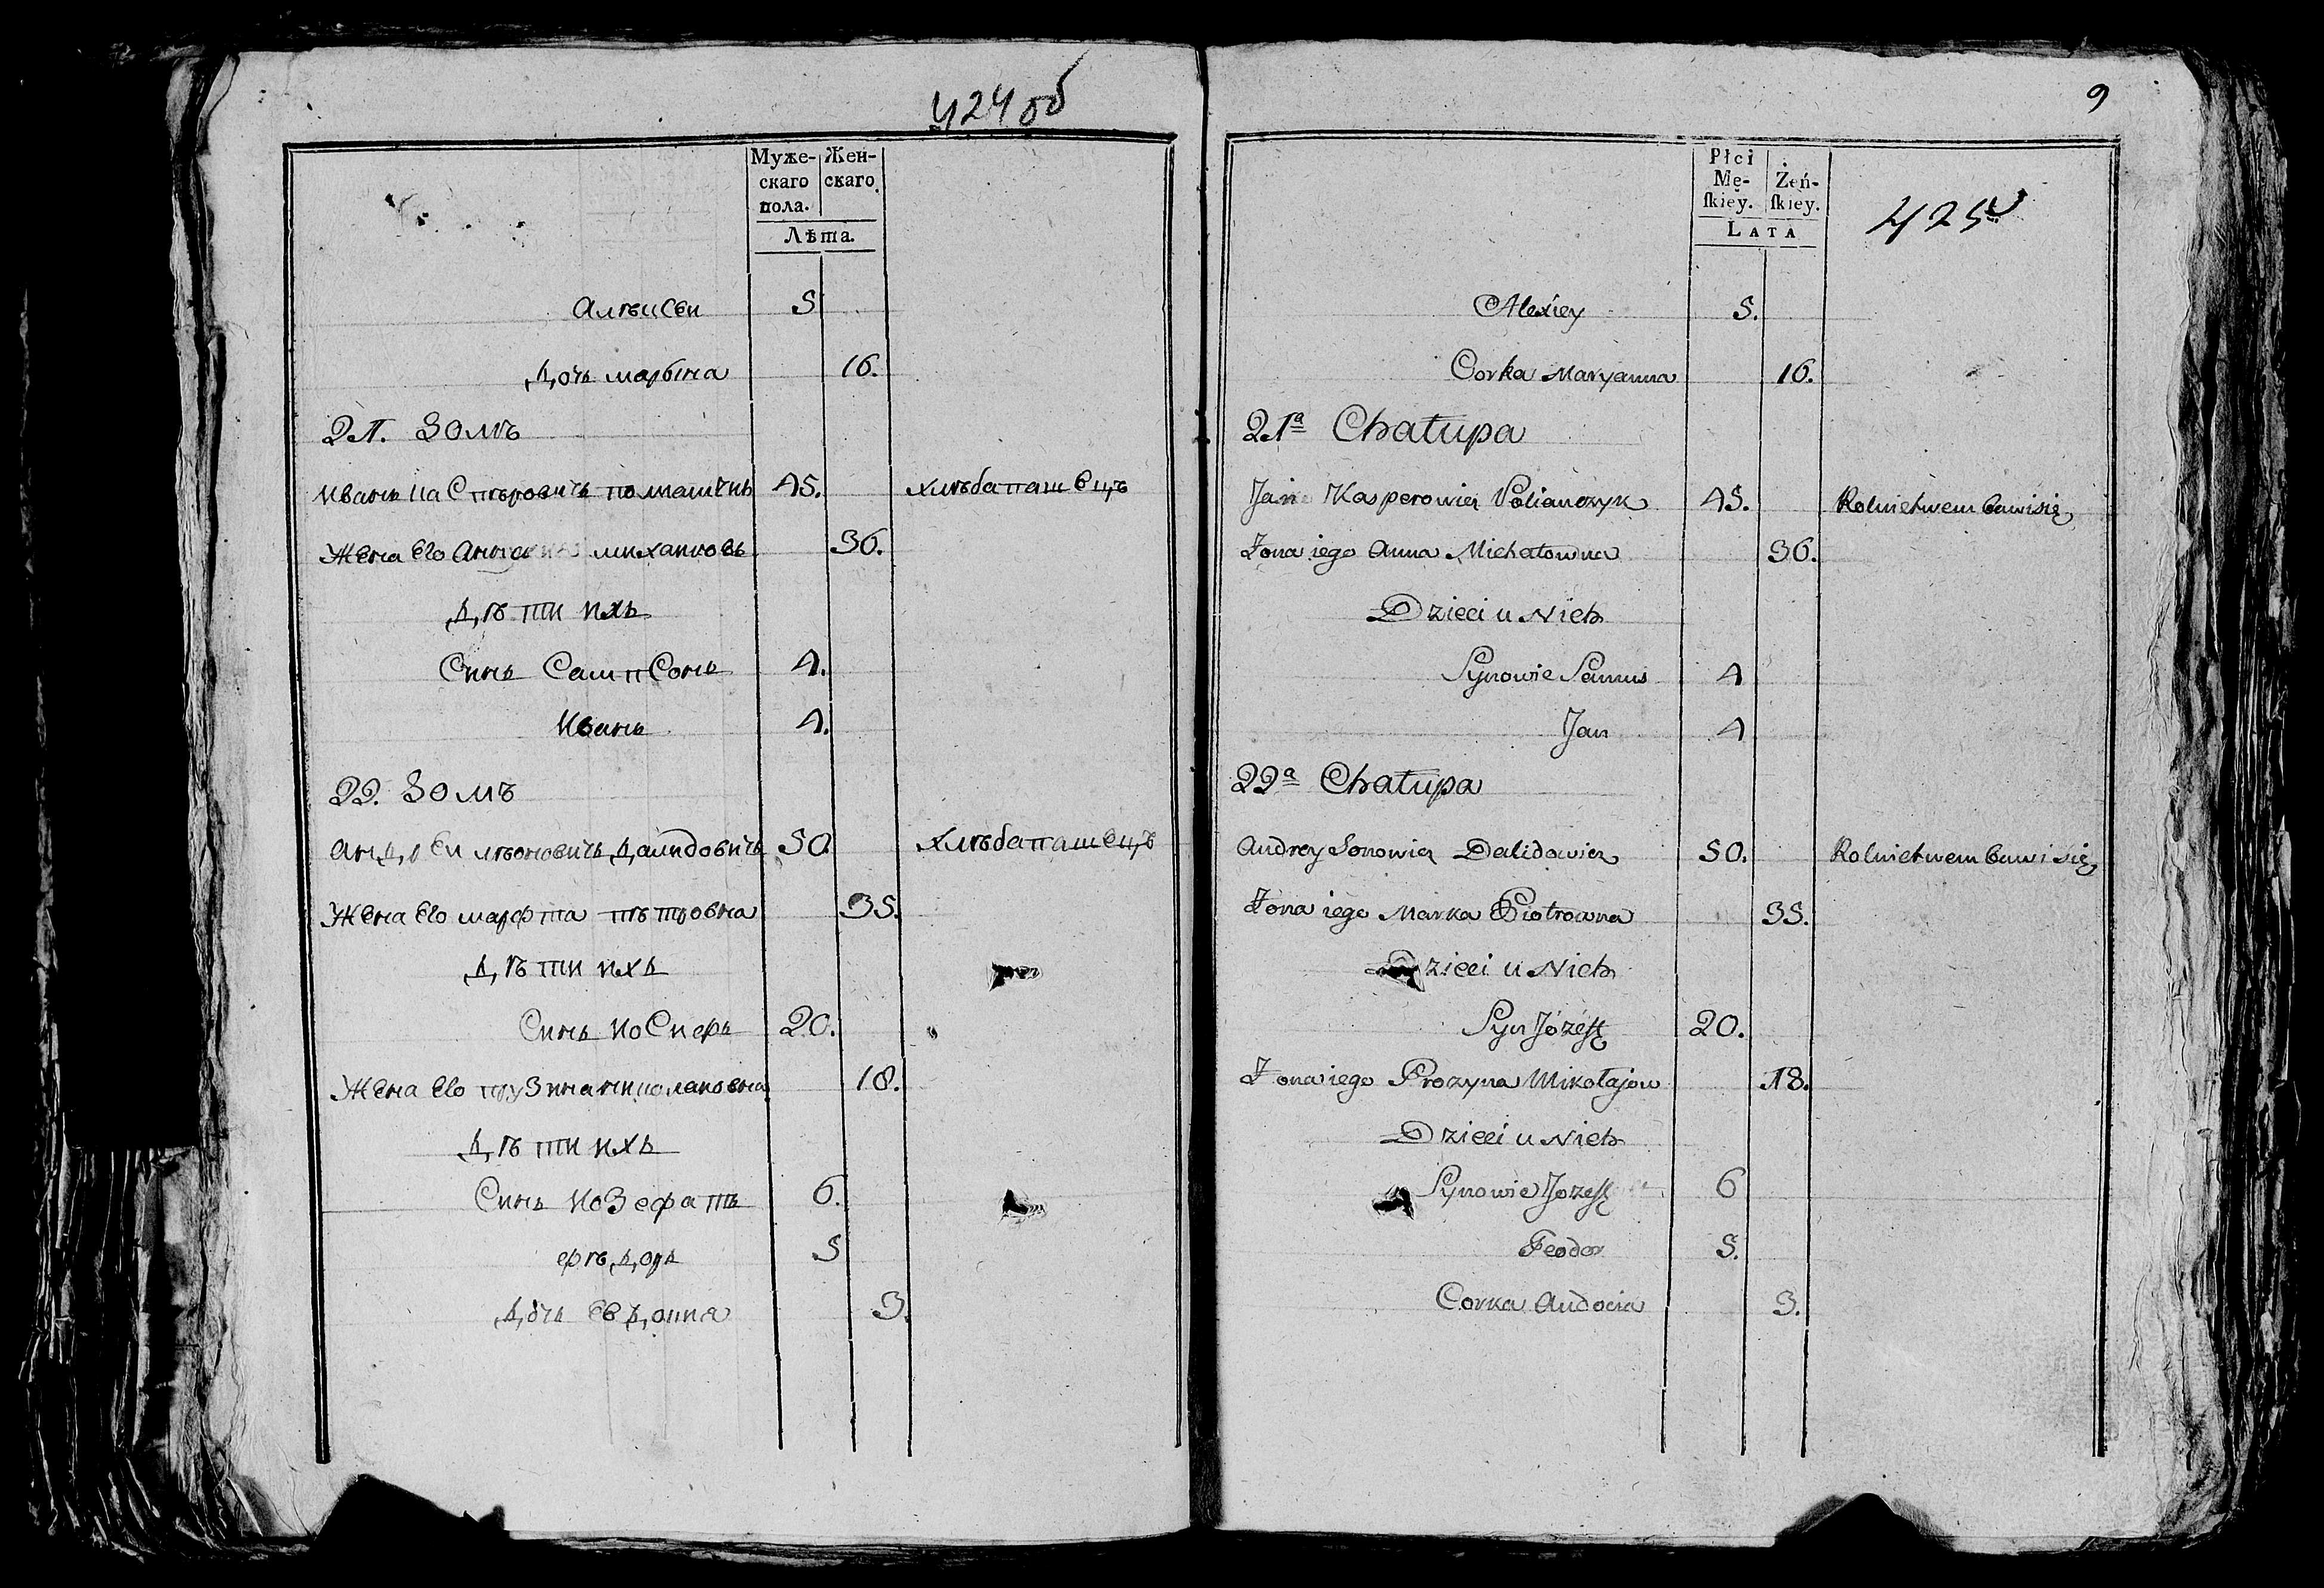 424 об
Муже-
скаго
пола.
Жен-
скаго.
Лѣта.
Алѣисеи 5
дочь марьıна 16.
21. Домъ
Иванъ каспѣровичъ полıанчикъ 45. хлѣбапашецъ
Жена Его Анна михаиловъ 36.
дѣти ихъ
Синъ Сампсонъ 4.
Иванъ 4.
22. Домъ
Андреи лѣоновичъ далıдовичъ 50. хлѣбапашецъ
Жена Его марфта пѣтровна 35.
дѣти ихъ
Синъ Иосифъ 20.
Жена Его прузина николаювна 18.
дѣти ихъ
Синъ Иозефатъ 6.
ѳѣдоръ 5
дочь Евдокия 3.
9
Płci
Mę-
skiey.
Żeń-
skiey.
LATA
425
Alexiey 5.
Corka Maryanna 16.
21ª Chałupa
Jan Kasperowicz Polianczyk 45. Rolnictwem bawi się
Żona iego Anna Michałowna 36.
Dzieci u Nich
Synowie Samus 4
Jan 4
22ª Chałupa
Andrey Leonowicz Dalidowicz 50. Rolnictwem bawi się
Żona iego Marka Piotrowna 35.
Dzieci u Nich
Syn Józeff 20.
Żona iego Prozyna Mikołajow 18.
Dzieci u Nich
Synowie Jozeff 6
Feodor 5.
Corka Audocia 3.